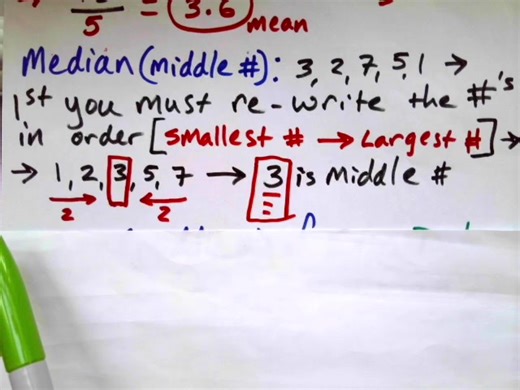 5 = 3.6 mean
Median (middle #): 3, 2, 7, 5, 1 →
1st you must re-write the #'s
in order [smallest # → Largest #] →
→ 1, 2, 3, 5, 7 → 3 is middle #
2 2